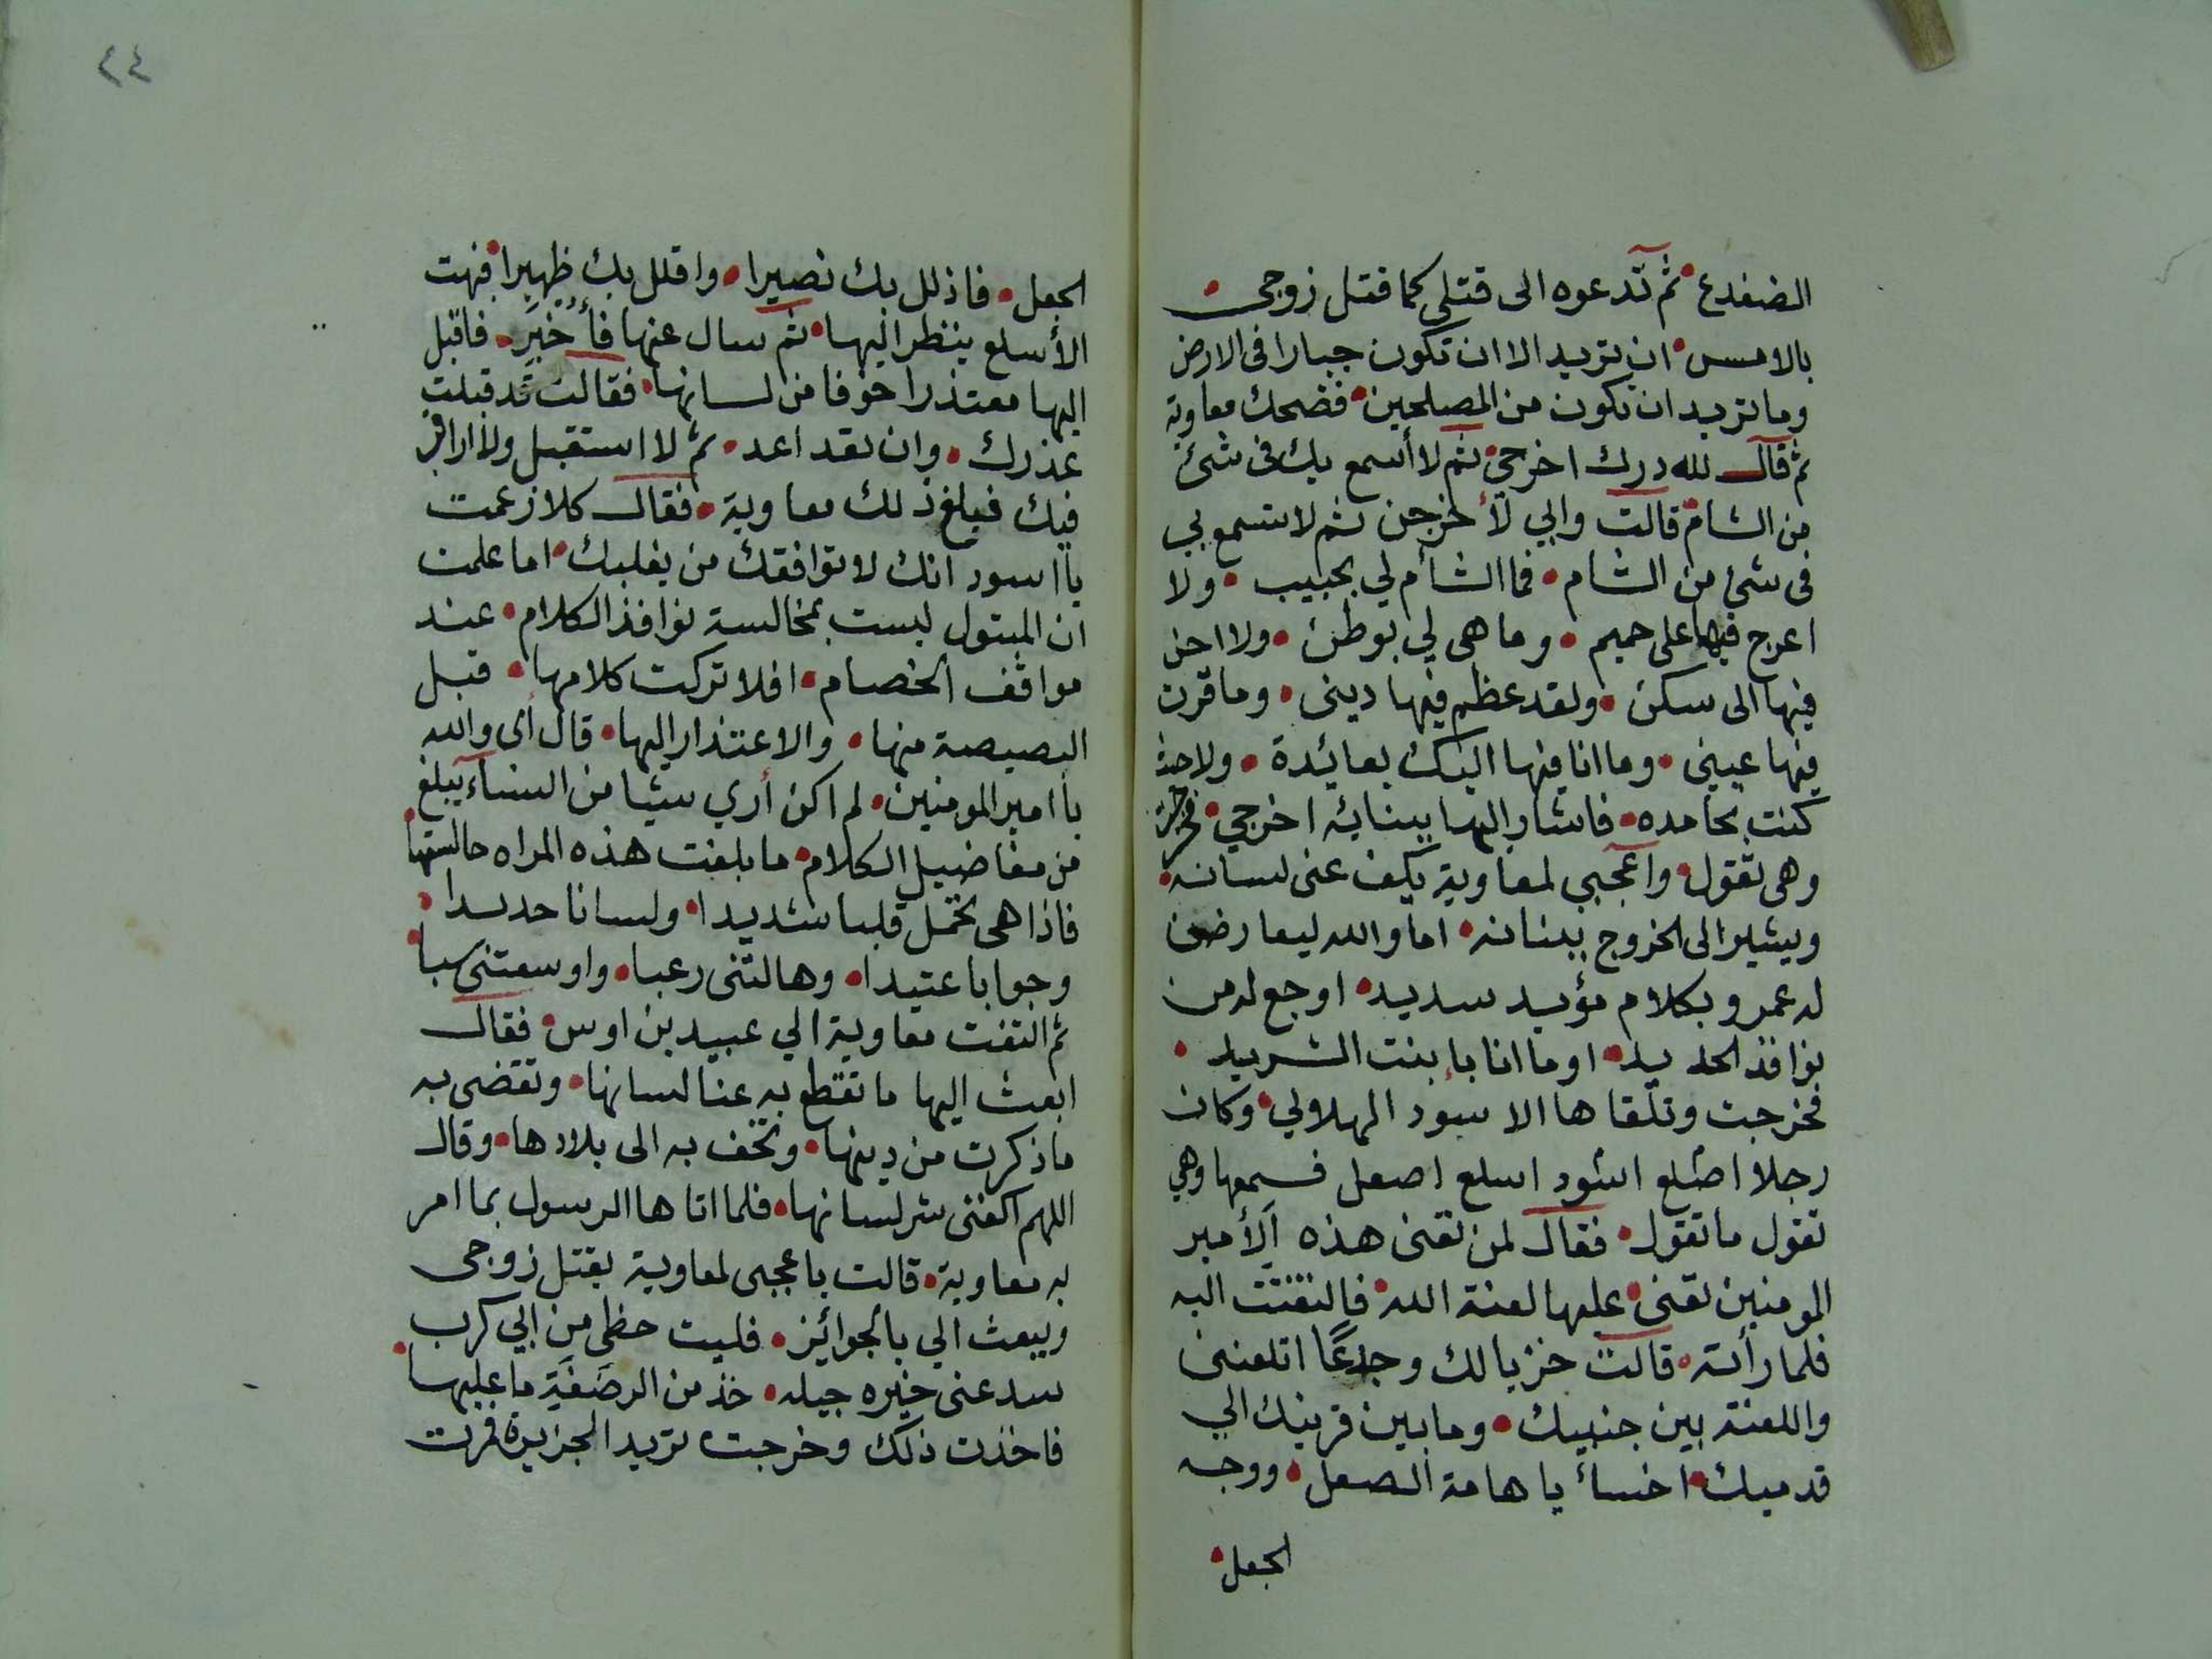 الضفدع ثم تدعوه الى قتلي كما قتل زوجى
بالامس ان تريد الا ان تكون جبارا فى الارض
وما تريد ان تكون من المصلحين فضحك معاوية
ثم قال لله درك اخرجي ثم لا أسمع بك فى شئ
من الشام قالت وابي لأخرجن ثم لا تسمع بي
فى شئ من الشام فما الشأم لي بحبيب ولا
اعرج فيها على حميم وما هى لي بوطن ولا احن
فيها الى سكن ولقد عظم فيها دينى وما قرت
فيها عينى وما انا فيها اليك بعائدة ولا حيث
كنت بحامده فاشار اليها ببنانه اخرجي فخرجت
وهى تقول واعجبي لمعاوية يكف عنى لسانه
ويشير الى الخروج ببنانه اما والله ليعارضن
له عمرو بكلام مؤيد سديد اوجع له من
نوافذ الحديد او ما انا بابنت الشريد
فخرجت وتلقاها الاسود الهلالي وكان
رجلا اصلع اسود اسلع اصعل فسمعها وهي
تقول ما تقول فقال لمن تعنى هذه الأمير
المومنين تعنى عليها لعنة الله فالتفتت اليه
فلما رأته قالت خزيا لك وجدعًا اتلعننى
واللعنة بين جنبيك وما بين قرينك الي
قدميك اخسأ يا هامة الصعل ووجه
الجعل
٢٤
الجعل فاذلل بك نصيرا واقلل بك ظهيرا فبهت
الأسلع ينظر اليها ثم سال عنها فأخبر فاقبل
اليها معتذرا خوفا من لسانها فقالت قد قبلت
عذرك وان تعد اعد ثم لا استقبل ولا اراقب
فيك فبلغ ذلك معاوية فقال كلا زعمت
يا اسود انك لا توافقك من يغلبك اما علمت
ان المبتول ليست بمخالسة نوافذ الكلام عند
مواقف الخصام افلا تركت كلامها قبل
البصبصة منها والاعتذار اليها قال أى والله
يا امير المومنين لم اكن أري شيئا من النساء يبلغ
من مفاضيل الكلام ما بلغت هذه المراه حالستها
فاذا هى تحمل قلبا شديدا ولسانا حديدا
وجوابا عتيدا وهالتنى رعبا واوسعتنى سبا
ثم التفت معاوية الي عبيد بن اوس فقال
ابعث اليها ما تقطع به عنا لسانها وتقضى به
ما ذكرت من دينها وتخف به الى بلادها وقال
اللهم اكفنى شر لسانها فلما اتاها الرسول بما امر
به معاوية قالت يا عجبى لمعاوية يقتل زوجى
ويبعث الي بالجوائز فليت حظى من ابي كرب
سد عنى خيره جيله خذ من الرضفة ما عليها
فاخذت ذلك وخرجت تريد الجزيرة فمرت